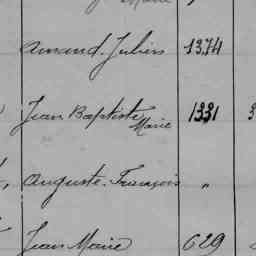 Marie
Amand-Julien 1374
Jean Baptiste Marie 1331
Auguste-François "
Jean Marie 629